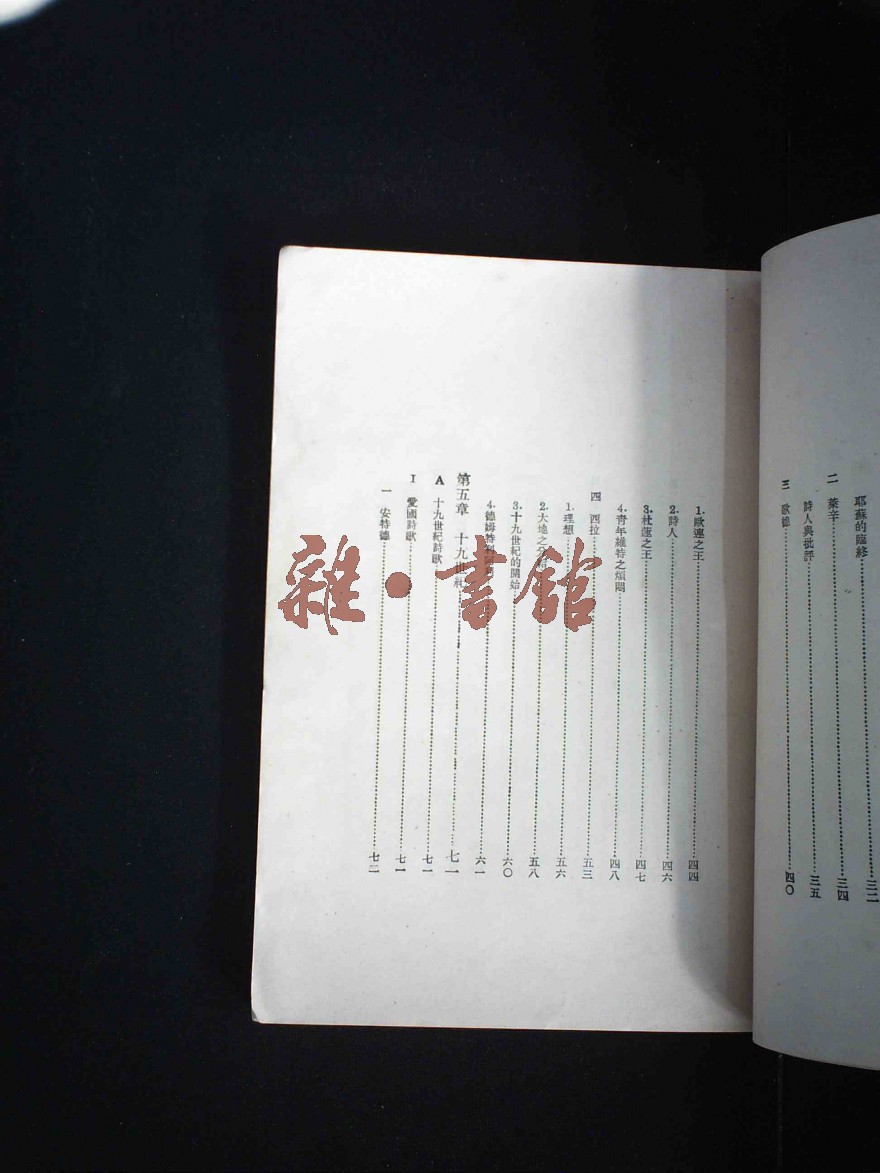 耶蘇的臨終……三二
二 萊辛……三四
詩人與批評……三五
三 歌德……四〇
1.歐連之王……四四
2.詩人……四六
3.杜蓮之王……四七
4.青年維特之煩悶……四八
四 西拉……五三
1.理想……五六
2.大地之分……五八
3.十九世紀的開始……六〇
4.德姆特……六一
第五章 十九世紀……七一
A 十九世紀詩歌……七一
I 愛國詩歌……七一
一 安特德……七二
雜·書館